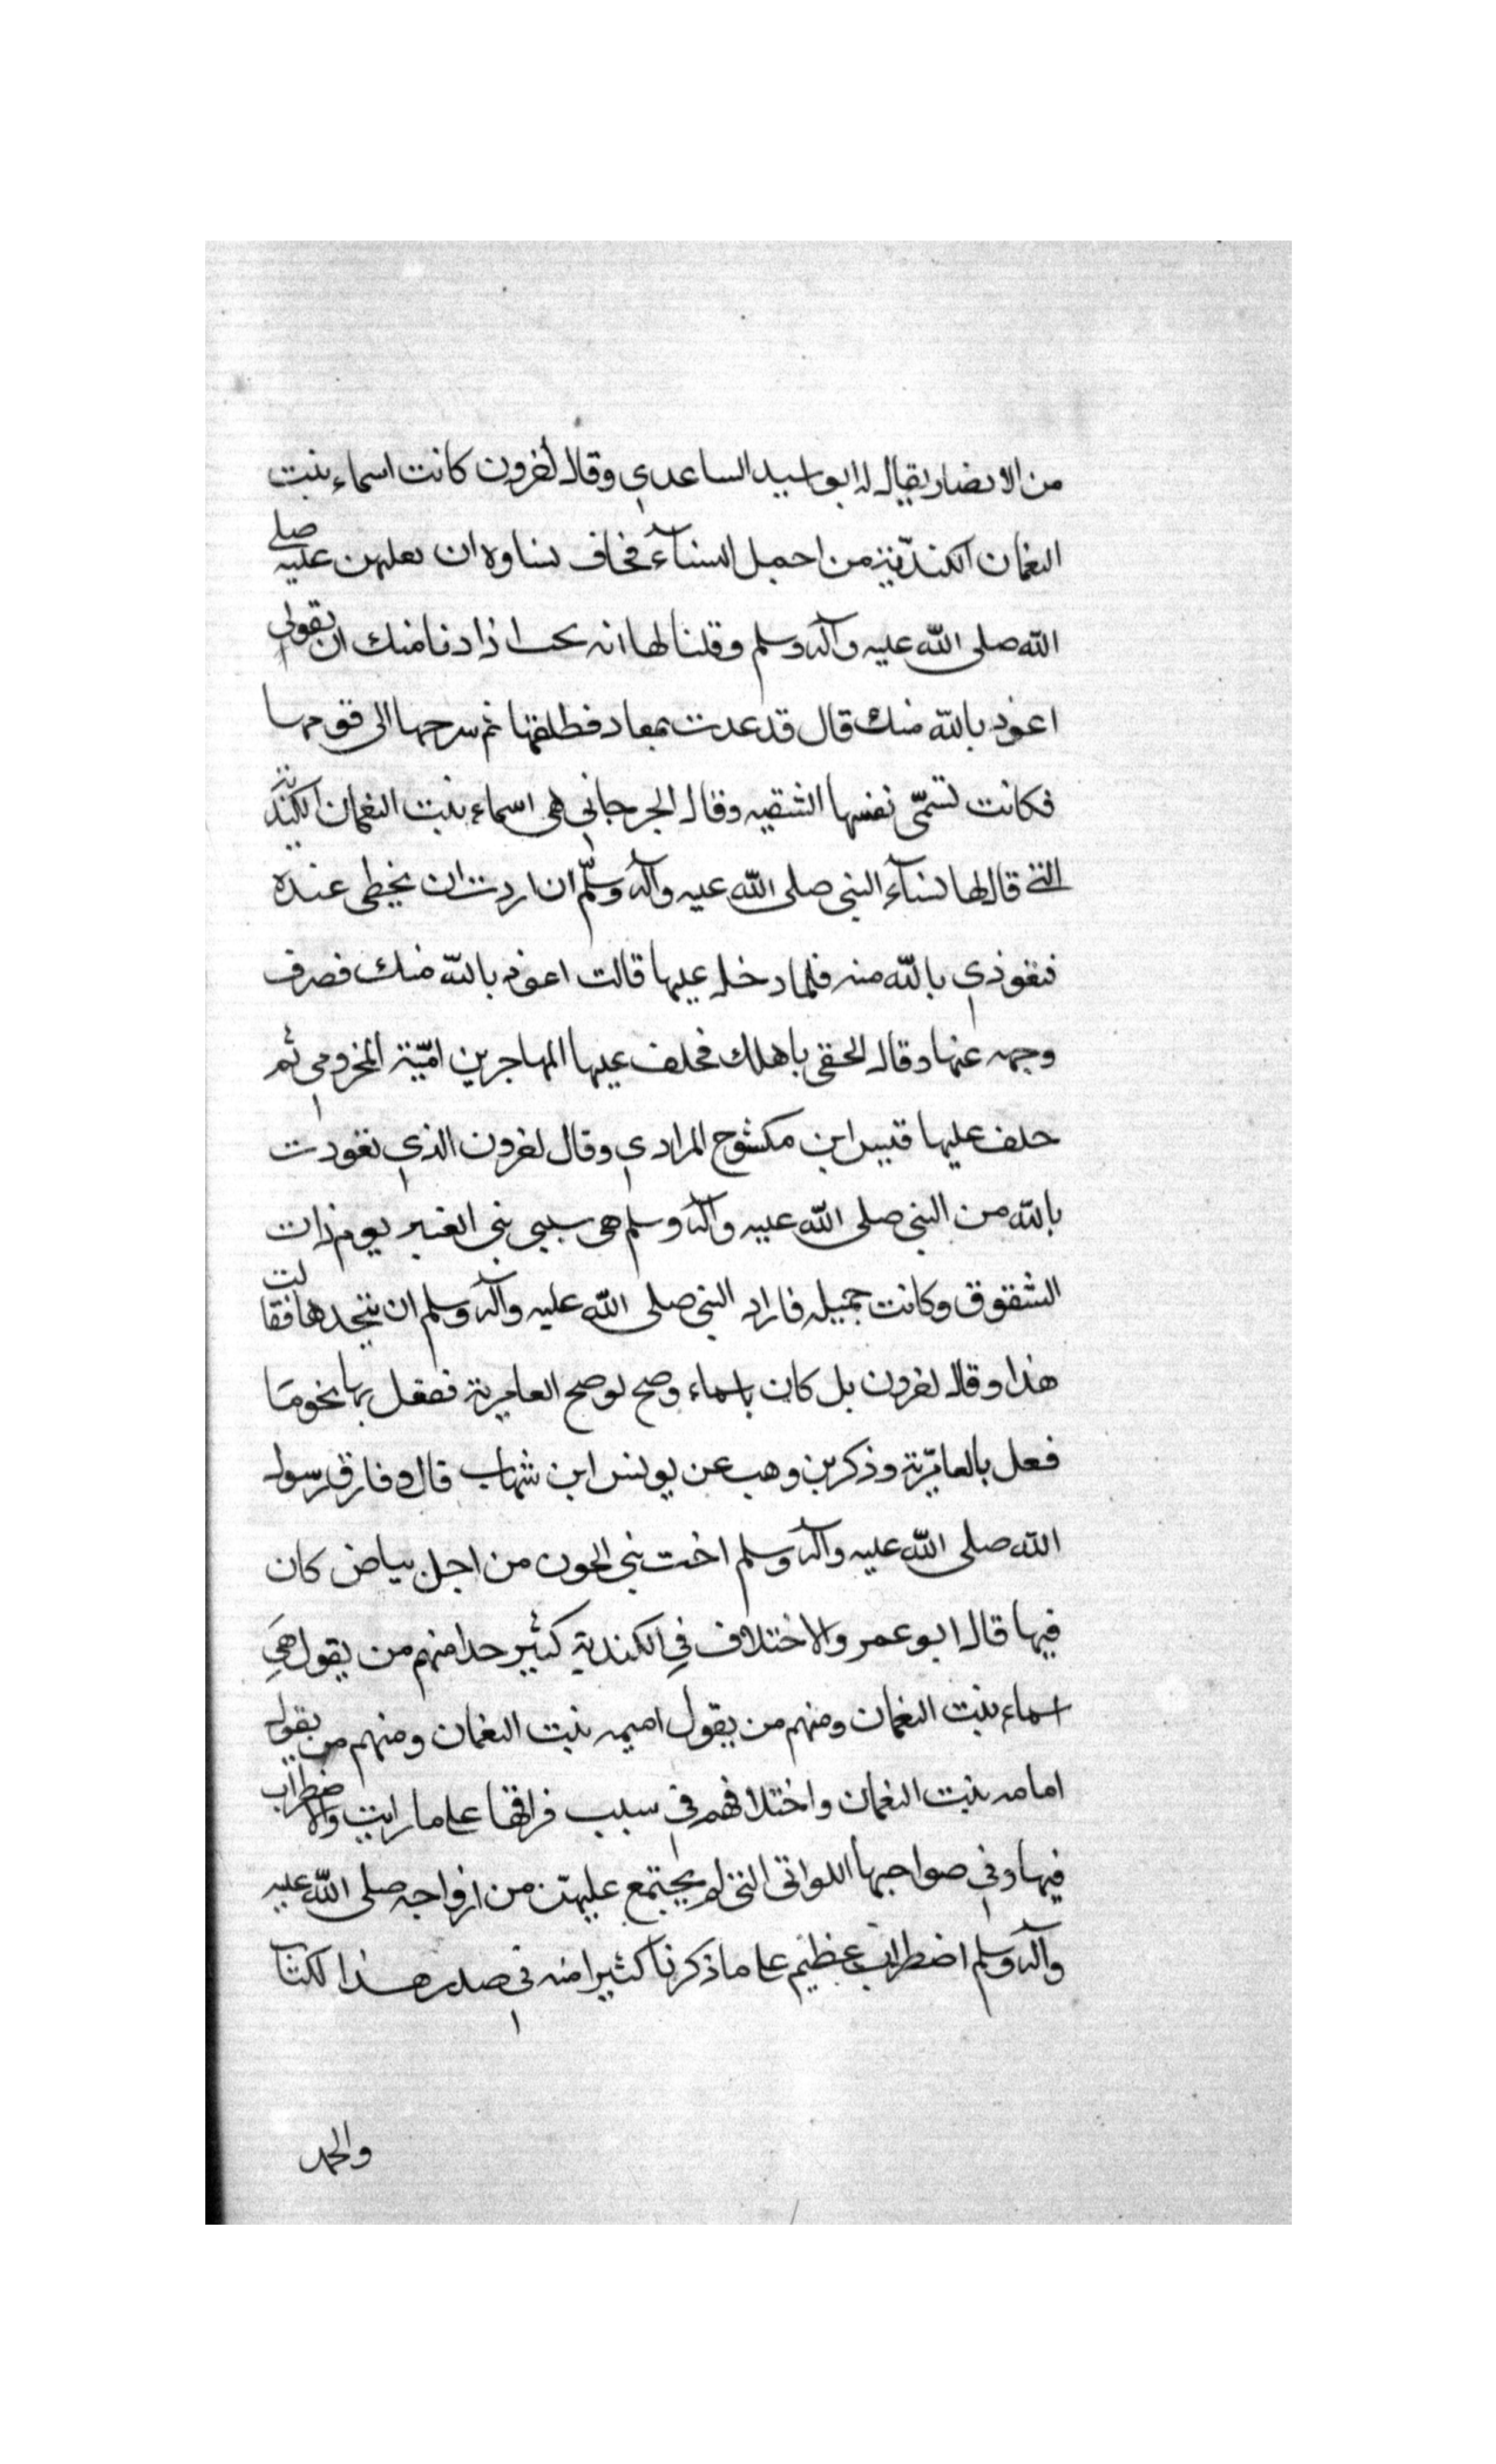 من الانصار يقال له ابو اسيد الساعدي وقال اخرون كانت اسماء بنت
النعمان الكنديّة من اجمل النسآء فخاف نساوه ان تغلبهن عليه صلى
الله صلى الله عليه وآله وسلم وقلنا لها انه يحب اذا دنا منك ان تقولى
اعوذ بالله منك قال قد عدت بمعاد فطلقها ثم سرحها الى قومها
فكانت تسمّى نفسها الشقيه وقال الجرجاني هي اسماء بنت النعمان الكندية
التى قال لها نسآء النبي صلى الله عليه وآله وسلّم ان اردت ان يحظى عنده
فتعوذي بالله منه فلما دخل عليها قالت اعوذ بالله منك فصرف
وجهه عنها وقال الحقي باهلك فخلف عليها المهاجر بن اميّة المخزومي ثم
خلف عليها قيس ابن مكشوح المرادي وقال اخرون الذي تعودت
بالله من النبي صلى الله عليه وآله وسلم هي سبي بني العنبر يوم ذات
الشقوق وكانت جميله فاراد النبي صلى الله عليه وآله وسلم ان يتخدها فقالت
هذا وقال اخرون بل كان باسماء وضح لوضح العامرية ففعل بها نحو مَا
فعل بالعامريّة وذكر بن وهب عن يونس ابن شهاب قال وفارق رسول
الله صلى الله عليه وآله وسلم اخت بني الجون من اجل بياض كان
فيها قال ابو عمر والاختلاف فِي الكندية كثير جدا منهم من يقول هيَ
اسماء بنت النعمان ومنهم من يقول اميمه بنت النعمان ومنهم من يقول
امامه بنت النعمان واختلافهم في سبب فراقها على ما رايت والاضطراب
فيها وفي صواحبها اللواتى التى لم يجتمع عليهنّ من ازواجه صلى الله عليه
وآله وسلم اضطراب عظيم على ما ذكرنا كثيرا منه في صدر هذا الكتاب
والحمد